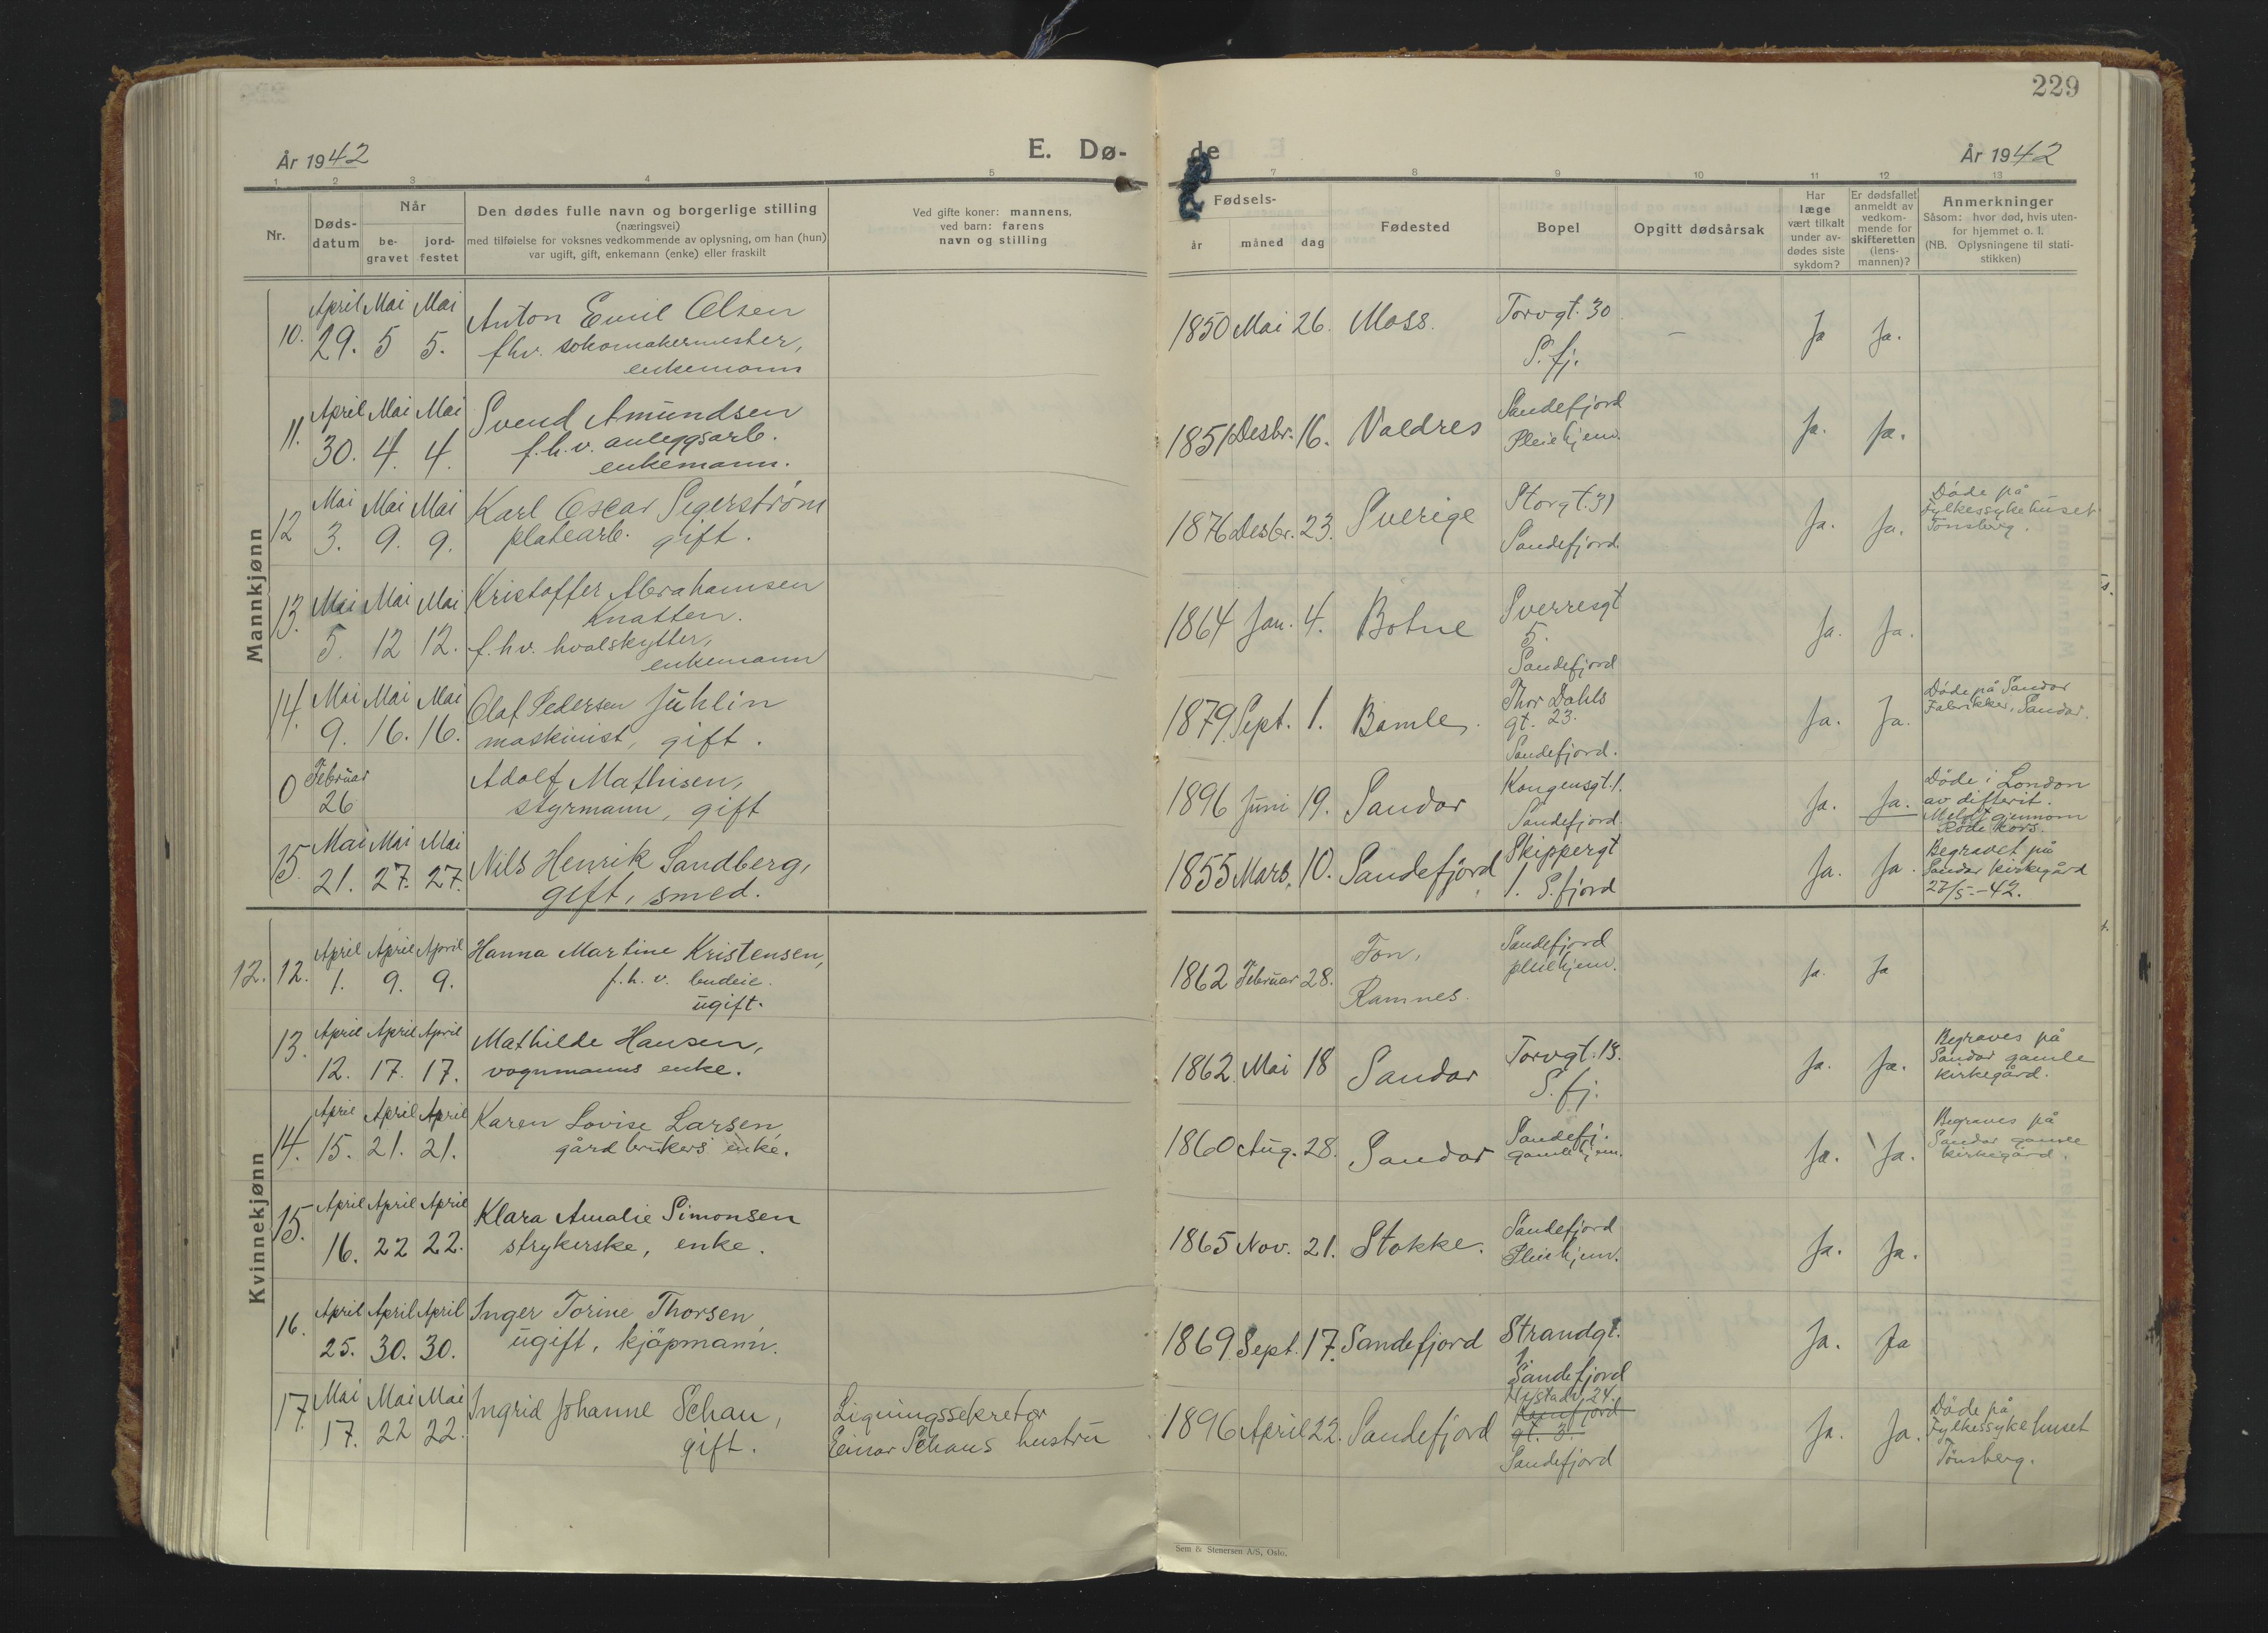 229
År 1942
E. Dø-
de
År 1942
1 2 3 4 5 7 8 9 10 11 12 13
Nr.
Døds-
datum
Når
be-
gravet
jord-
festet
Den dødes fulle navn og borgerlige stilling
(næringsvei)
med tilføielse for voksnes vedkommende av oplysning, om han (hun)
var ugift, gift, enkemann (enke) eller fraskilt
Ved gifte koner: mannens,
ved barn: farens
navn og stilling
Fødsels-
år måned dag
Fødested
Bopel
Opgitt dødsårsak
Har
læge
vært tilkalt
under av-
dødes siste
sykdom?
Er dødsfallet
anmeldt av
vedkom-
mende for
skifteretten
(lens-
mannen)?
Anmerkninger
Såsom: hvor død, hvis uten-
for hjemmet o. l.
(NB. Oplysningene til stati-
stikken)
Mannkjønn
10. April 29. Mai 5 Mai 5.
Anton Emil Olsen
fhv. skomakermester,
enkemann
1850 Mai 26. Moss.
Torvgt. 30
S.fj.
- Ja Ja.
11. April 30. Mai 4. Mai 4.
Svend Amundsen
f.h.v. anleggsarb.
enkemann.
1851 Desbr. 16. Valdres
Sandefjord
Pleiehjem.
Ja. Ja.
12 Mai 3. Mai 9. Mai 9.
Karl Oscar Segerstrøm
platearb. gift.
1876 Desbr. 23. Sverige
Storgt. 31
Sandefjord.
Ja. Ja.
Døde på
Fylkessykehuset
Tønsberg.
13. Mai 5. Mai 12 Mai 12.
Kristoffer Abrahamsen
Knatten.
f.hv. hvalskytter,
enkemann
1864 Jan. 4. Botne
Sverresgt
5.
Sandefjord
Ja. Ja.
14. Mai 9. Mai 16. Mai 16.
Olaf Pedersen Juhlin
maskinist, gift.
1879 Sept. 1. Bamle.
Thor Dahls
gt. 23.
Sandefjord.
Ja. Ja.
Døde på Sandar
Fabrikker, Sandar.
0 Februar 26
Adolf Mathisen,
styrmann, gift
1896 Juni 19. Sandar
Kongensgt. 1.
Sandefjord.
Ja. Ja.
Døde i London
av difterit.
Meldt gjennom
Røde Kors.
15. Mai 21. Mai 27. Mai 27.
Nils Henrik Sandberg,
gift, smed.
1855 Mars. 10. Sandefjord
Skippergt
1. S.fjord
Ja. Ja.
Begravet på
Sandar kirkegård
27/5-42.
Kvinnekjønn
12. 12. April 1. April 9. April 9.
Hanna Martine Kristensen,
f.h.v. budeie.
ugift.
1862 Februar 28. Fon,
Ramnes.
Sandefjord
pleiehjem.
Ja. Ja
13. April 12. April 17. April 17.
Mathilde Hansen,
vognmanns enke.
1862 Mai 18 Sandar
Torvgt. 18.
S.fj.
Ja. Ja.
Begraves på
Sandar gamle
kirkegård.
14. April 15. April 21. April 21.
Karen Lovise Larsen
gårdbrukers enke.
1860 Aug. 28. Sandar
Sandefj.
gamlehjem.
Ja. Ja.
Begraves på
Sandar gamle
kirkegård.
15. April 16. April 22 April 22.
Klara Amalie Simonsen
strykerske, enke.
1865 Nov. 21. Stokke.
Sandefjord
Pleiehjem.
Ja. Ja.
16. April 25. April 30. April 30.
Inger Torine Thorsen
ugift, kjøpmann.
1869 Sept. 17. Sandefjord
Strandgt.
1.
Sandefjord
Ja. Ja
17. Mai 17. Mai 22 Mai 22.
Ingrid Johanne Schau,
gift.
Ligningssekretær
Einar Schaus hustru
1896 April 22. Sandefjord
Nystadv. 24.
gt. 3.
Sandefjord
Ja. Ja.
Døde på
Fylkessykehuset
Tønsberg.
Sem & Stenersen A/S, Oslo.